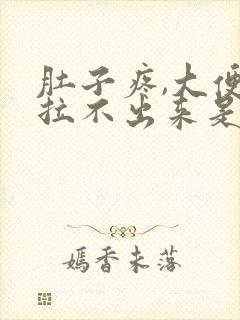 肚子疼,大便
拉不出来是
嫣香未落